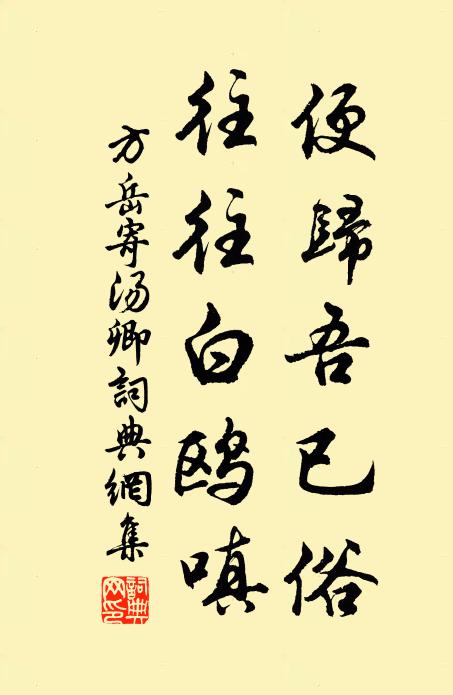 便歸吾已俗
往往白鸥嗔
方岳寄汤卿詞典網集